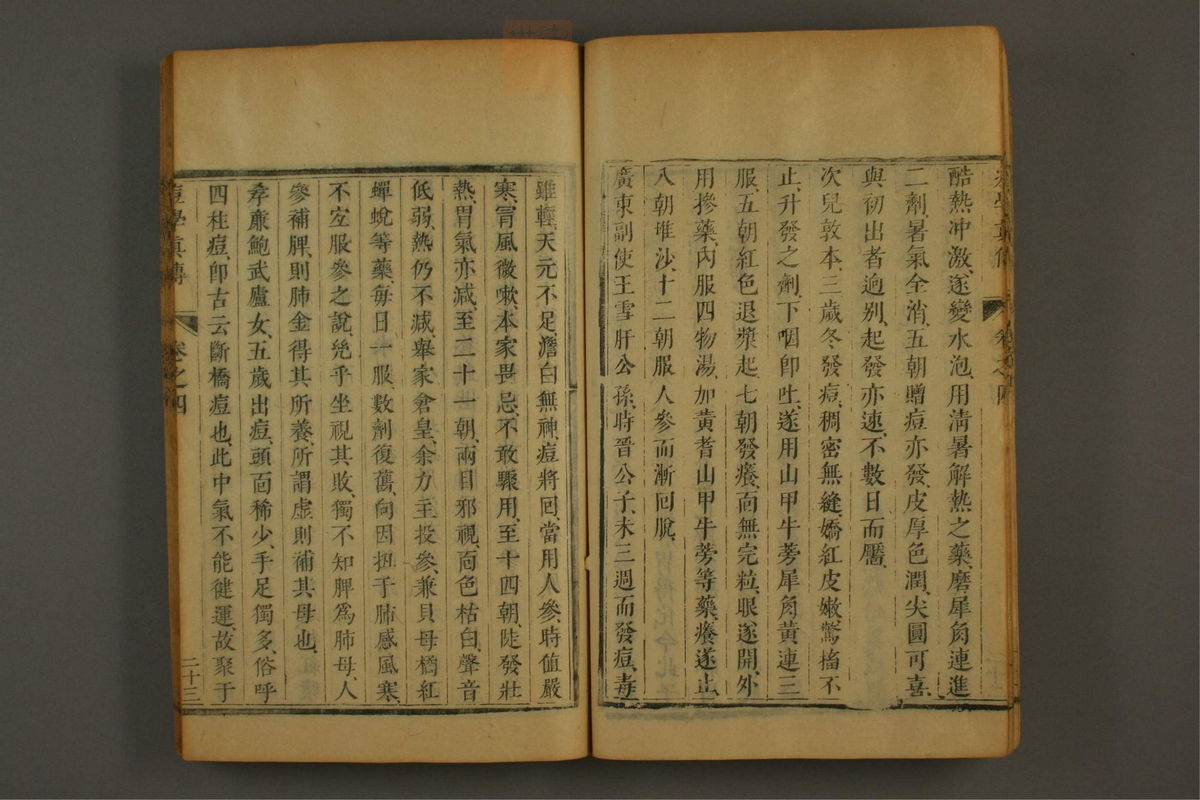 痘學眞傳 卷之四
酷熱冲激、遂變水泡、用淸暑解熱之藥、磨犀角連進
二劑、暑氣全消、五朝贈痘亦發、皮厚色潤、尖圓可喜、
與初出者逈别、起發亦速、不數日而靨、
次兒敦本、三歲冬發痘、稠密無縫、嬌紅皮嫩、驚搐不
止、升發之劑、下咽卽吐、遂用山甲牛蒡犀角黃連三
服、五朝紅色退、漿起、七朝發癢、面無完粒、眼遂開、外
用摻藥、内服四物湯、加黃耆山甲牛蒡等藥、癢遂止、
八朝堆沙、十二朝服人參而漸回脫、
廣東副使王雪肝公孫、時晉公子、未三週而發痘、毒
雖輕、天元不足、澹白無神、痘將回當用人參、時值嚴
寒、冒風微嗽、本家畏忌、不敢驟用、至十四朝、陡發壯
熱、胃氣亦减、至二十一朝、兩目邪視、面色枯白、聲音
低弱、熱仍不减、舉家倉皇、余力主投參、兼貝母橘紅
蟬蛻等藥、每日一服、數劑復舊、向因拑于肺感風寒、
不宐服參之說、㡬乎坐視其敗、獨不知脾爲肺母、人
參補脾、則肺金得其所養、所謂虛則補其母也、
孝亷鮑武廬女、五歲出痘、頭面稀少、手足獨多、俗呼
四柱痘、卽古云斷橋痘也、此中氣不能健運、故聚于
痘學眞傳 卷之四 二十三